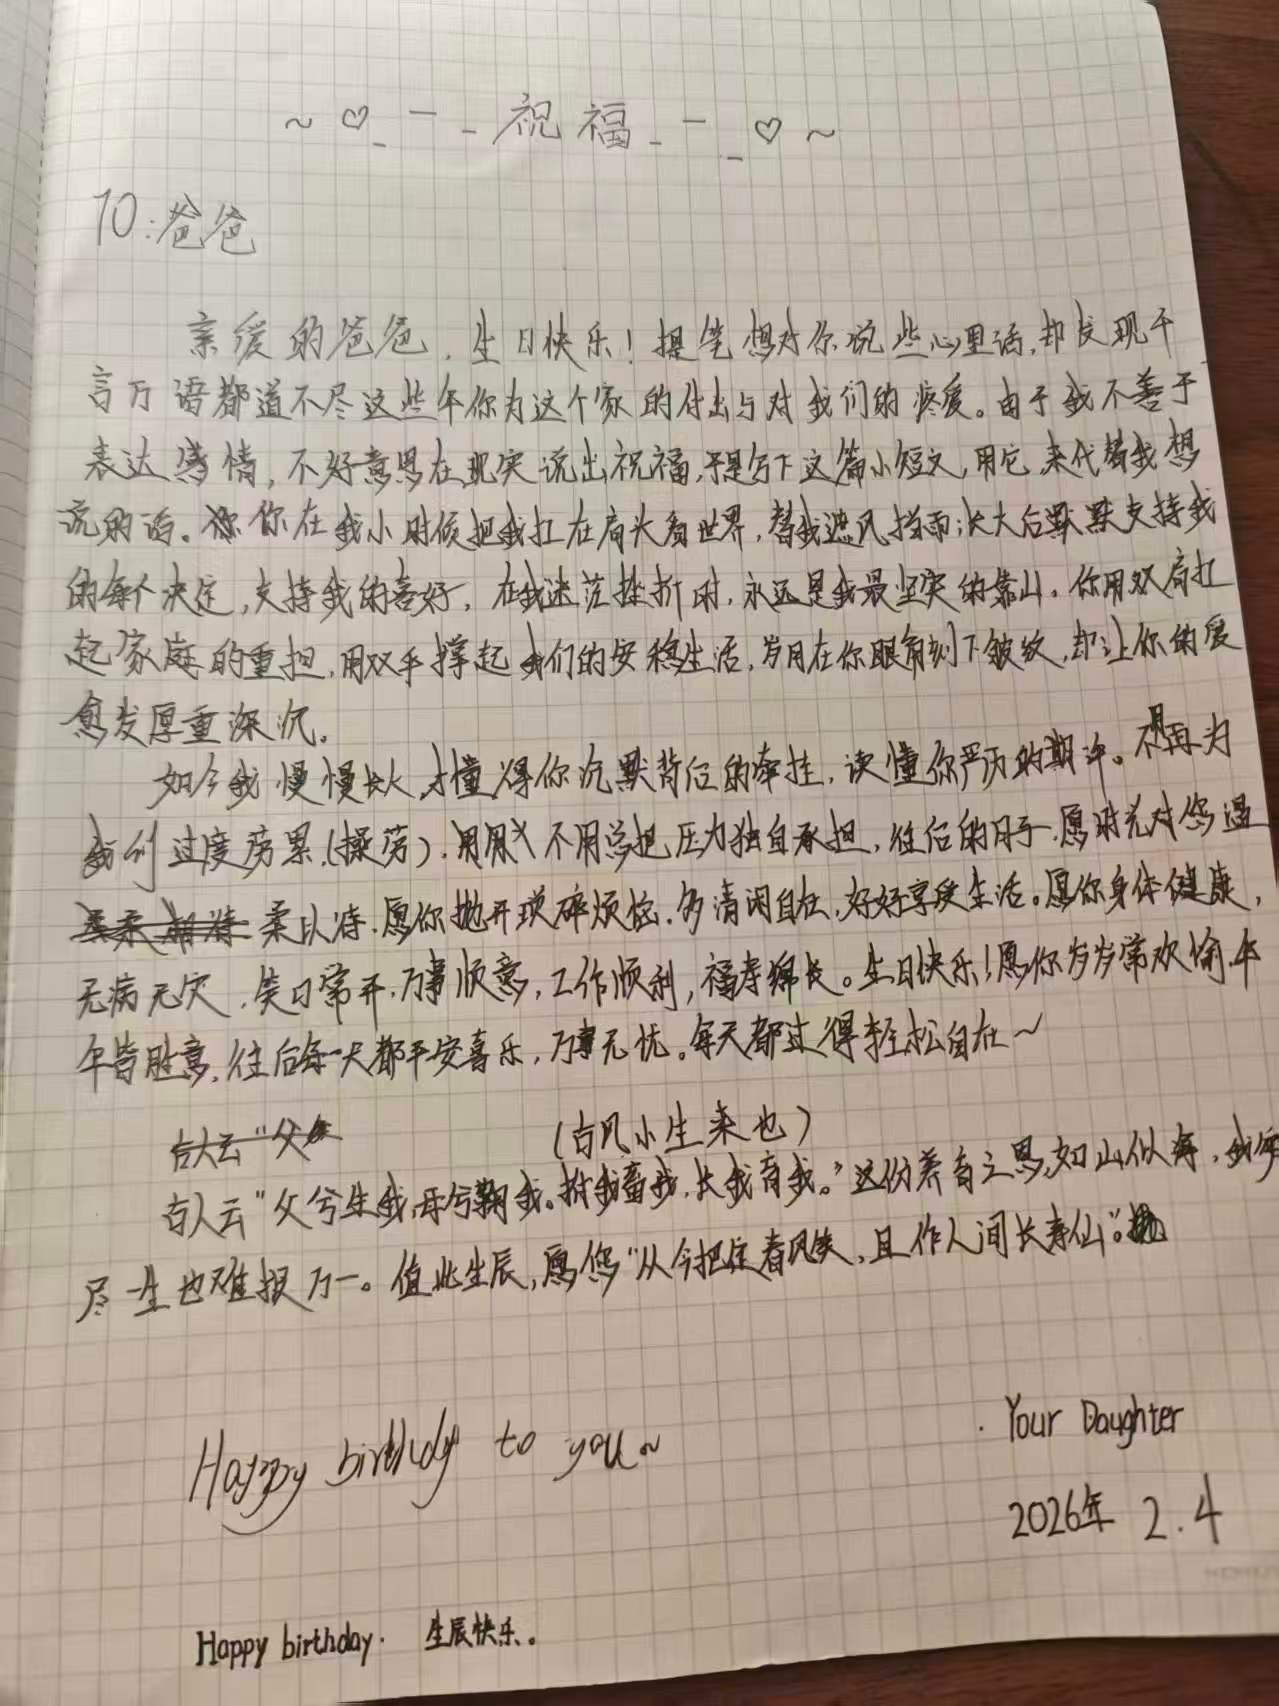 ~♡_—_祝福_—_♡~
TO:爸爸
亲爱的爸爸,生日快乐!提笔想对你说些心里话,却发现千
言万语都道不尽这些年你为这个家的付出与对我们的疼爱。由于我不善于
表达感情,不好意思在现实说出祝福,于是写下这篇小短文,用它来代替我想
说的话。你在我小时候把我扛在肩头看世界,替我遮风挡雨;长大后默默支持我
的每个决定,支持我的喜好,在我迷茫挫折时,永远是我最坚实的靠山。你用双肩扛
起家庭的重担,用双手撑起我们的安稳生活,岁月在你眼角刻下皱纹,却让你的爱
愈发厚重深沉。
如今我慢慢长大,才懂得你沉默背后的牵挂,读懂你严厉的期许。不再为
我们过度劳累(操劳),不用总把压力独自承担,往后的日子,愿时光对您温
柔以待,愿你抛开琐碎烦恼,多清闲自在,好好享受生活。愿你身体健康,
无病无灾,笑口常开,万事顺意,工作顺利,福寿绵长。生日快乐!愿你岁岁常欢愉,年
年皆胜意,往后每一天都平安喜乐,万事无忧。每天都过得轻松自在~
古人云"父母
(古风小生来也)
古人云"父兮生我,母兮鞠我。拊我畜我,长我育我。"这份养育之恩,如山似海,我穷
尽一生也难报万一。值此生辰,愿您"从今把定春风笑,且作人间长寿仙"。
Happy birthdy to you~
. Your Daughter
2026年 2.4
Happy birthday. 生辰快乐。